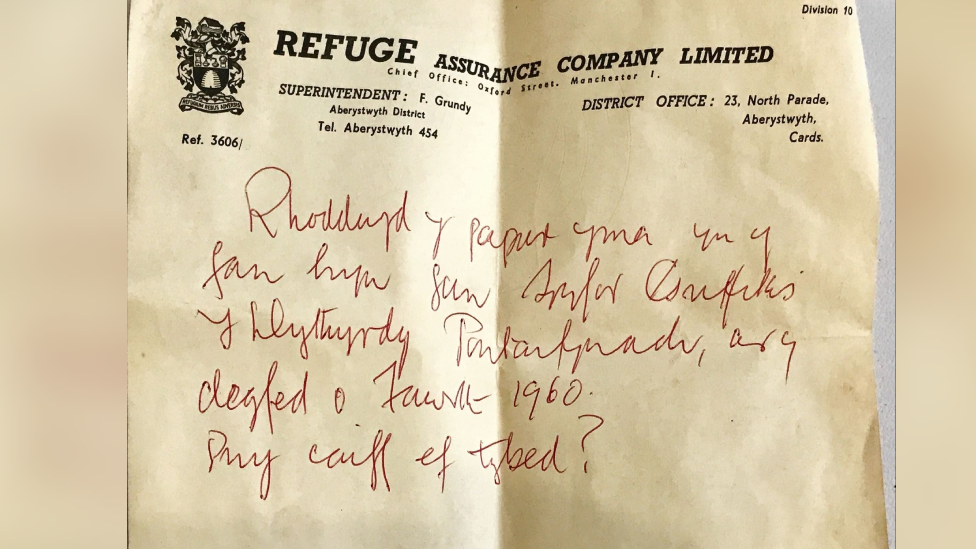 Division 10
REFUGE ASSURANCE COMPANY LIMITED
Chief Office: Oxford Street, Manchester 1.
SUPERINTENDENT: F. Grundy
Aberystwyth District
Tel. Aberystwyth 454
DISTRICT OFFICE: 23, North Parade,
Aberystwyth,
Cards.
Ref. 3606/
Rhoddwyd y papur yma yn y
fan hyn gan Griffiths
Y Llythyrdy Pontarfynach, ar y
degfed o Fawrth 1960.
Pwy caiff ef tybed?